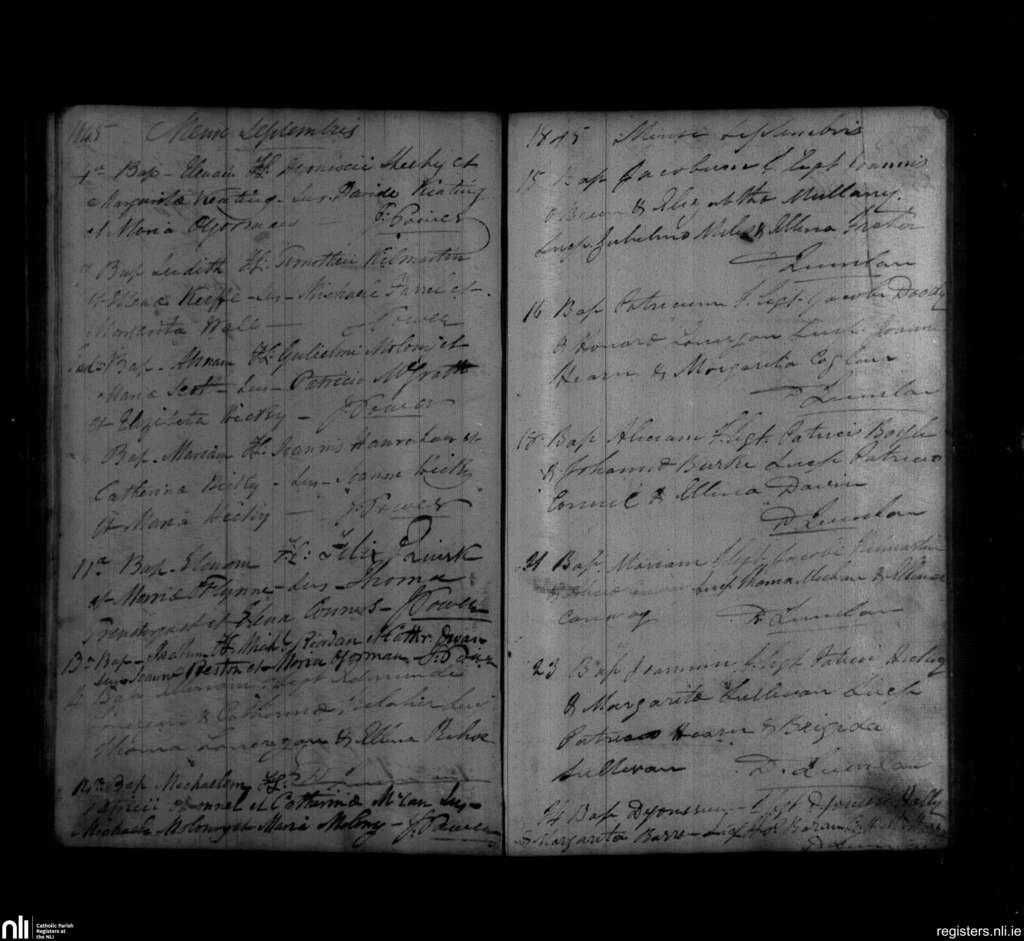 1845 Mense Septembris
4a Bap - Elenam FL: Dyonisii Meehy et
Margaritæ Keating - Sus. Davide Keating
et Maria OGorman J: Power
7 Bap Judith FL: Timothei Kilmartin
et Elenæ Keeffe - Sus - Michaele Farrel et -
Margarita Wall - J Power
Bap - Annam FL: Gulielmi Molony et
Mariæ Scot - Sus - Patricio McGrath
et Elizabeta Hicky - J: Power
Bap - Mariam FL: Joannis Hanrahan et
Catherinæ Hicky - Sus - Joanne Hicky
et Maria Hicky - J: Power
11a Bap - Elenam FL: Felix Quirk
et Mariæ Flynne - Sus - Thoma
Prendergast et Elena Connors - J Power
13a Bap - FL Mich: Riordan et Cathr: Dwan
Sus Joanne Heston et - Maria OGorman - J. Power
Bap
& Catherinæ Kelaher Sus
Thoma Lonergan & Ellena Kehoe
14a Bap Michaelem FL:
Patricii OConnel et Catherinæ McCan Sus -
Michaele Molony et Maria Molony - J: Power
1845 Mense Septembris
15 Bap Jacobum f Legt Joannis
OBrien & Elizabetha Mullany.
Susp Gulielmo Miles & Ellena Maher
D Quinlan
16 Bap Patricium f. Legt. Jacobi Doody
& Honora Lonargan Susp. Joanne
Hearn & Margarita Coghlan
D Quinlan
18 Bap Aliciam f. legt. Patricii Boyle
& Johanna Burke Susp Patricio
Connil & Ellena Davin
D. Quinlan
21 Bap. Mariam f legt Jacobi Kilmartin
& Susp Thoma Meehan & Ellena
Conway D. Quinlan
23 Bap Joannem f legt Patricii Hickey
& Margarita Sullivan Susp
Patricio Hearn & Brigida
Sullivan D. Quinlan
24 Bap Dyonisium - f legt Dyonisii Hally
& Margarita Barre -
D Quinlan
nli
Catholic Parish
Registers at
the NLI
registers.nli.ie